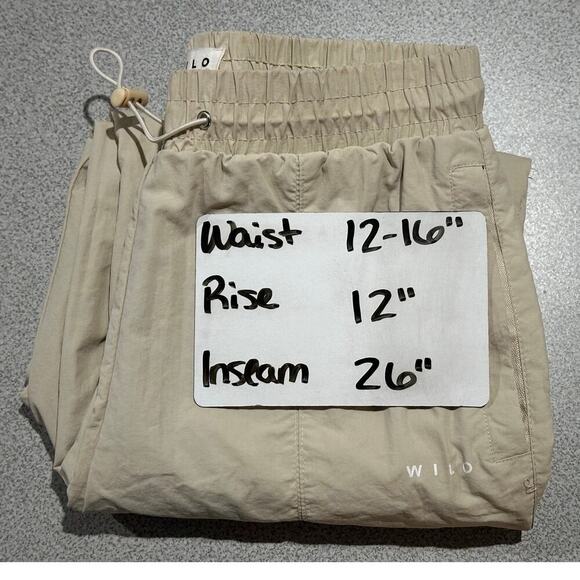 ILO
Waist 12-16"
Rise 12"
Inseam 26"
WILO